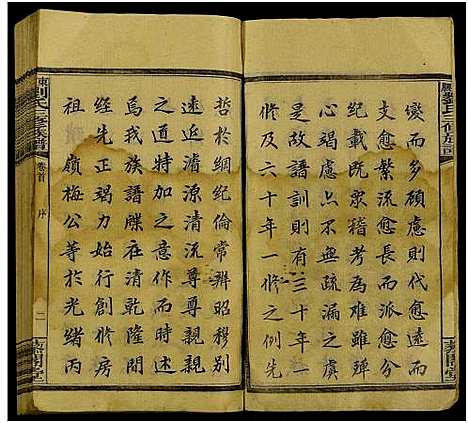 變而多頗慮則代愈遠而
支愈繁流愈長而派愈分
紀載既衆稽考為難雖殫
心竭慮亦無疏漏之虞
是故譜訓則有三十年一
修及六十年一修之例先
哲於綱紀倫常辨昭穆別
遠近清源清流尊尊親親
之道特加之意作而時述
焉我族譜牒在清乾隆間
經先正竭力始行創修房
祖嶺梅公等於光緒丙
卷首
序
二